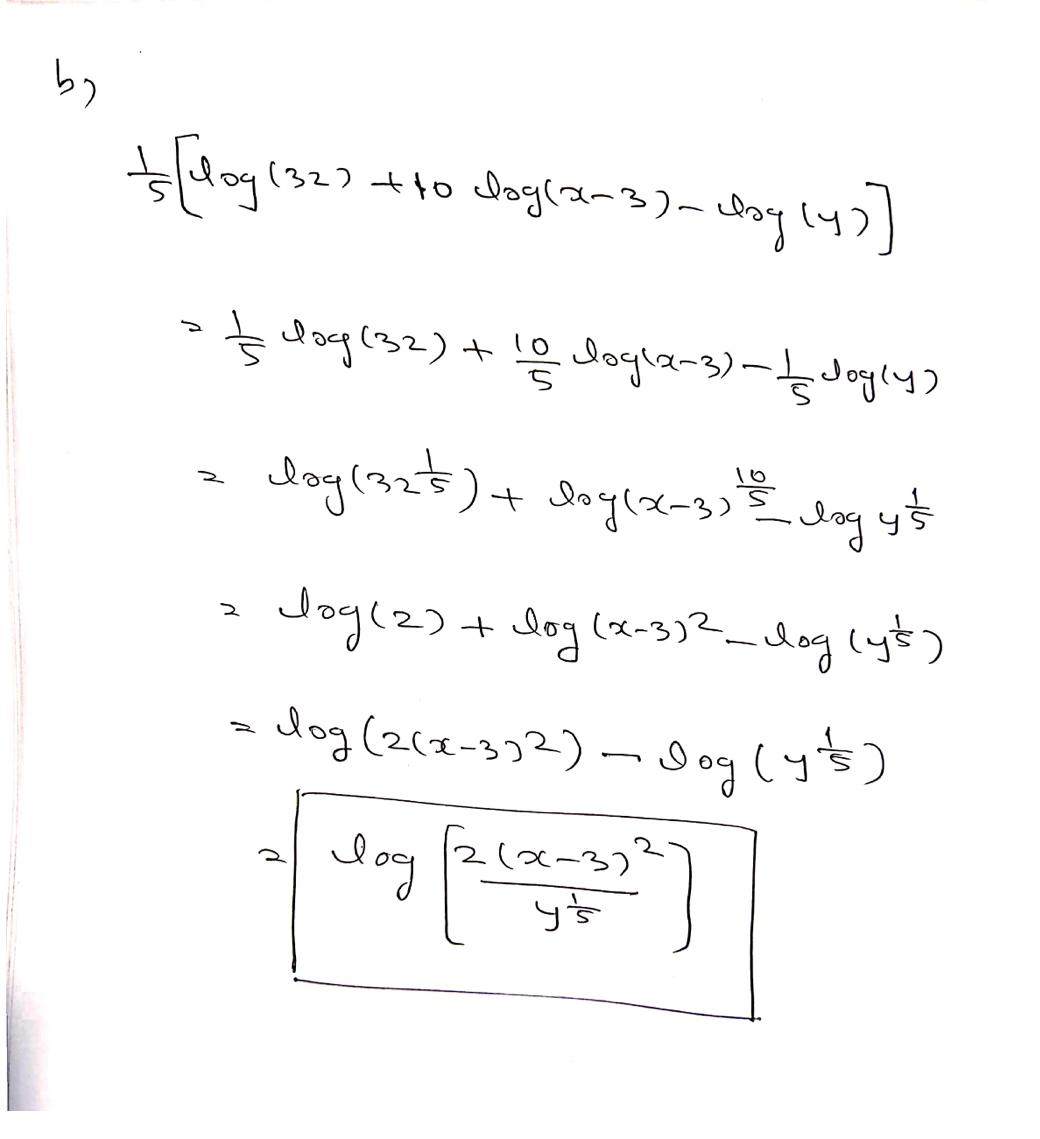 b)
1/5 [log(32) + 10 log(x-3) - log(y)]
= 1/5 log(32) + 10/5 log(x-3) - 1/5 log(y)
= log(32^(1/5)) + log(x-3)^(10/5) - log y^(1/5)
= log(2) + log(x-3)² - log(y^(1/5))
= log(2(x-3)²) - log(y^(1/5))
= log [2(x-3)² / y^(1/5)]